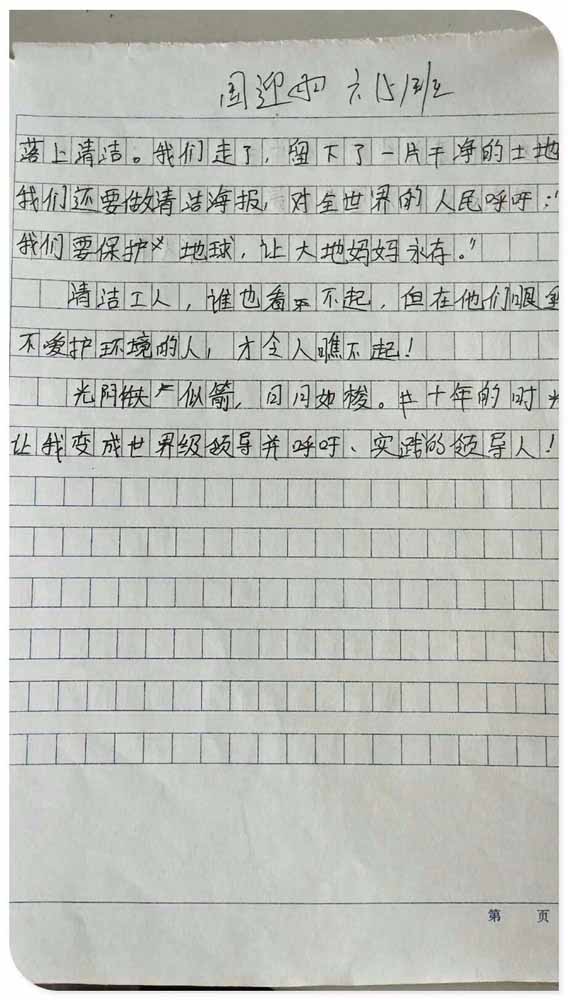 周迎雨 六(5)班
落上清洁。我们走了，留下了一片干净的土地
我们还要做清洁海报，对全世界的人民呼吁："
我们要保护地球，让大地妈妈永存。"
清洁工人，谁也看不起，但在他们眼里
不爱护环境的人，才令人瞧不起！
光阴似箭，日月如梭。廿十年的时
让我变成世界级领导并呼吁、实践的领导人！
第 页